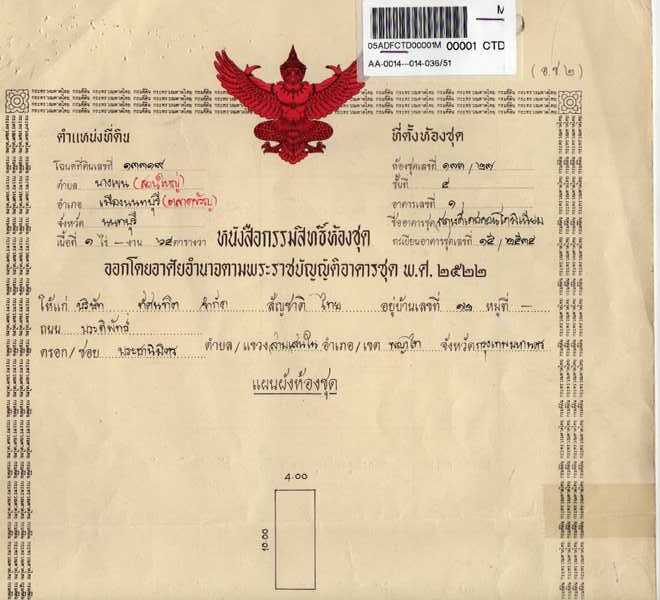 M
05ADFCTD00001M 00001 CTD
AA-0014--014-036/51
(อ.ช ๒)
ตำแหน่งที่ดิน
ที่ตั้งห้องชุด
โฉนดที่ดินเลขที่ ๑๓๓๑๙
ห้องชุดเลขที่ ๑๓๓/๒๗
ตำบล บางเขน (สวนใหญ่)
ชั้นที่ ๔
อำเภอ เมืองนนทบุรี (ตลาดขวัญ)
อาคารเลขที่ ๑
จังหวัด นนทบุรี
ชื่ออาคารชุด
เนื้อที่ ๑ ไร่ – งาน ๖๙ ตารางวา
ทะเบียนอาคารชุดเลขที่ ๑๕/๒๕๓๔
หนังสือกรรมสิทธิ์ห้องชุด
ออกโดยอาศัยอำนาจตามพระราชบัญญัติอาคารชุด พ.ศ. ๒๕๒๒
ให้แก่ บริษัท จำกัด สัญชาติ ไทย อยู่บ้านเลขที่ ๑๑ หมู่ที่ –
ถนน ประดิพัทธ์
ตรอก/ซอย ตำบล/แขวง สามเสนใน อำเภอ/เขต พญาไท จังหวัด กรุงเทพมหานคร
แผนผังห้องชุด
4.00
10.00